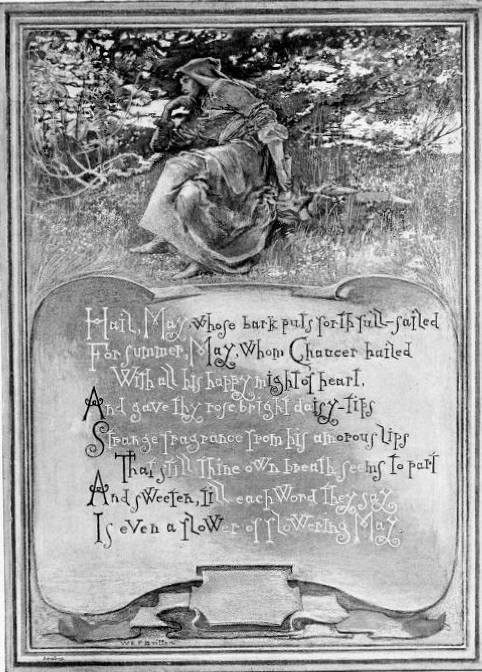 Hail, May, whose bark puts forth full-sailed
For summer, May, whom Chaucer hailed
With all his happy might of heart,
And gave thy rosebright daisy-tips
Strange fragrance from his amorous lips
That still thine own breath seems to part
And sweeten, till each Word they say
Is even a flower of flowering May.
W.E.F. Britten